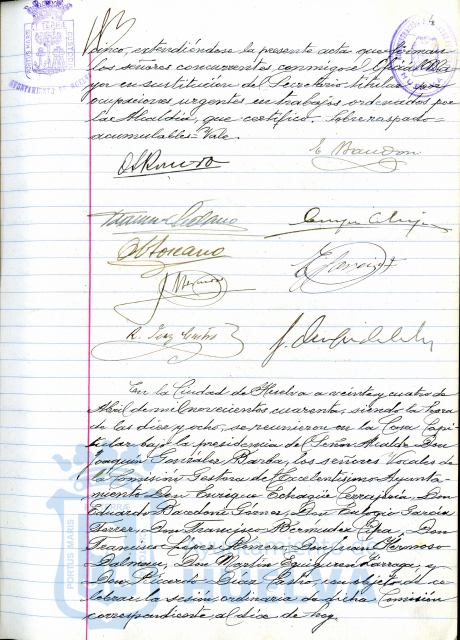 cinco, extendiéndose la presente acta que firman
los señores concurrentes conmigo el Oficial Ma-
yor en sustitución del Secretario titular por
ocupaciones urgentes en trabajos ordenados por
la Alcaldía, que certifico. Sobreraspado =
acumulables = Vale.
En la Ciudad de Huelva a veinte y cuatro de
Abril de mil novecientos cuarenta, siendo la hora
de las diez y ocho, se reunieron en la Casa Capi-
tular bajo la presidencia del Señor Alcalde Don
Joaquín González Barba, los señores Vocales de
la Comisión Gestora del Excelentísimo Ayunta-
miento Don Enrique Don
Eduardo Gomez, Don Eulogio García
Ferrer, Don Francisco Bermudez Don
Francisco López Don Juan Hermoso
Dalmau, Don Martín y
Don Ricardo Diaz Castro, con objeto de ce-
lebrar la sesión ordinaria de dicha Comisión
correspondiente al día de hoy.